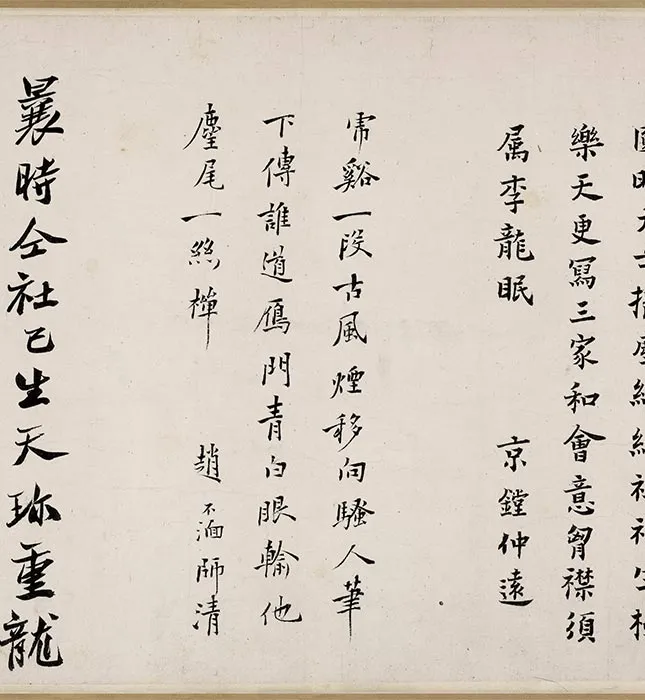 樂天更寫三家和會意胷襟須
属李龍眠　京鏜仲遠
虎谿一段古風煙移向騷人筆
下傳誰道鴈門青白眼輸他
麈尾一絲禪　趙不湎師清
曩時仝社已生天珎重龍